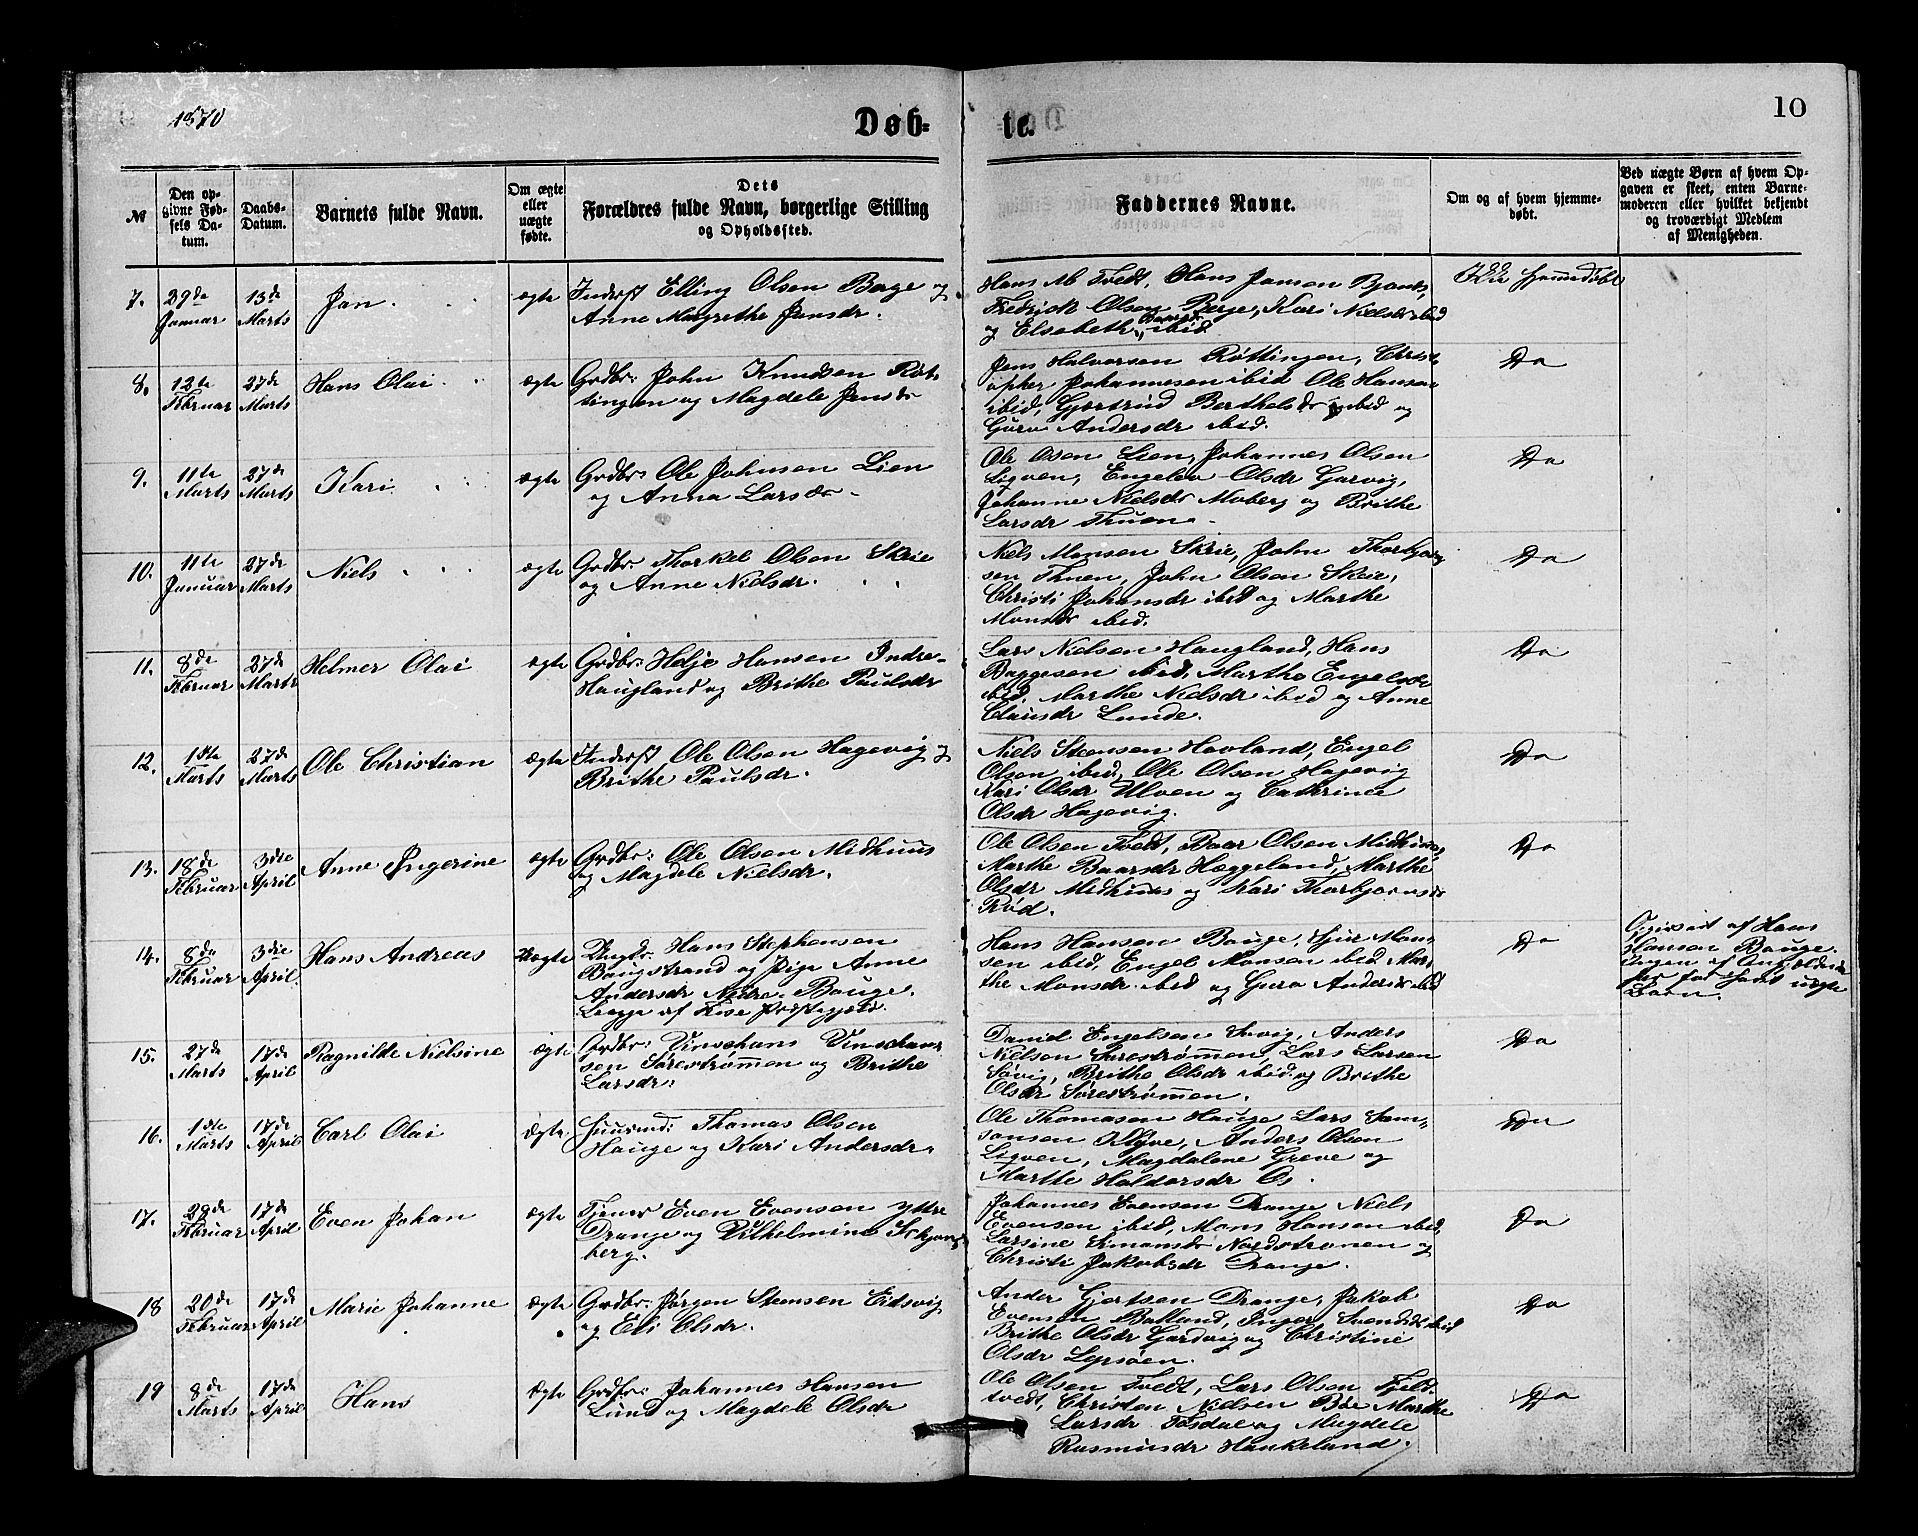 1870
Døb-
te.
10
№
Den opgivne Fødsels Datum.
Daabs-Datum.
Barnets fulde Navn.
Om ægte eller uægte fødte.
Dets Forældres fulde Navn, borgerlige Stilling og Opholdssted.
Faddernes Navne.
Om og af hvem hjemmedøbt.
Ved uægte Børn af hvem Opgaven er skeet, enten Barnemoderen eller hvilket bekjendt og troværdigt Medlem af Menigheden.
7. 29de Januar 13de Marts Jan. ægte Inderst Elling Olsen Bage og
Anne Margrethe Jansdr.
Hans M Tvedt, Hans Jansen
Fredrik Olsen Berge, Kari Nielsdr ibid
og Elsebeth Baarsdr ibid
Ikke hjemmedøbt
8. 12te Februar 27de Marts Hans Olai ægte Grdbr: John Knudsen Røt-
tingen og Magdele Jensdr
Jens Halvorsen Røttingen, Christ-
opher Johannesen ibid Ole Hansen
ibid, Gjertrud Berthelsdr ibid og
Guro Andersdr ibid.
Do
9. 11te Marts 27de Marts Kari ægte Grdbr: Ole Johnsen Lien
og Anna Larsdr
Ole Osen Lien, Johannes Olsen
Ligven, Engelev Olsdr Garvig,
Johanne Nielsdr Moberg og Brithe
Larsdr Thuen.
Do
10. 11te Januar 27de Marts Niels ægte Grdbr. Thorkel Olsen Skeie
og Anne Nielsdr.
Niels Monsen Skeie, John Thorbjørn-
sen Thuen, John Olsen Skeie,
Christi Johansdr ibid og Marthe
Monsdr ibid.
Do
11. 8de Februar 27de Marts Helmer Olai ægte Grdbr: Helje Hansen Indre-
Haugland og Brithe Paulsdr
Lars Nielsen Haugland, Hans
Baggesen ibid, Marthe Engelsdr
ibid, Marthe Nielsdr ibid og Anne
Clausdr Lunde.
Do
12. 1ste Marts 27de Marts Ole Christian ægte Inderst Ole Olsen Hagevig og
Brithe Paulsdr.
Niels Steensen Hovland, Engel
Olsen ibid, Ole Olsen Hagevig
Kari Olsdr Ulven og Cathrine
Olsdr Hagevig.
Do
13. 18de Februar 3die April Anne Ingerine ægte Grdbr: Ole Olsen Midhuus
og Magdele Nielsdr.
Ole Olsen Tvedt, Baar Olsen Midhuus,
Marthe Baarsdr Hæggeland, Marthe
Olsdr Midhuus og Kari Thorbjørnsdr
Rød.
Do
14. 8de Februar 3die April Hans Andreas Uægte Ungkr. Hans Stephensen
Baugstrand og Pige Anne
Andersdr Nedre-Bauge.
Begge af Fuse Præstegjeld.
Hans Hansen Bauge, Sjur Mon-
sen ibid, Engel Monsen ibid Mar-
the Monsdr. ibid og Guro Andersdr ibid
Do
Opgivet af Hans
Hansen Bauge.
Ingen af
før for havt uægte
Børn.
15. 27de Marts 17de April Ragnilde Nielsine ægte Grdbr: Vinschans Vinschan-
sen Sørestrømmen og Brithe
Larsdr:
Daniel Engelsen Søvig, Anders
Nielsen Sørestrømmen, Lars Larsen
Søvig, Brithe Olsdr ibid og Brithe
Olsdr Sørestrømmen.
Do
16. 1ste Marts 17de April Carl Olai ægte Huusmd: Thomas Olsen
Hauge og Kari Andersdr.
Ole Thomasen Hauge Lars Sam-
sonsen Klyve, Anders Olsen
Ligven, Magdalene Greve og
Marthe Haldorsdr Os.
Do
17. 29de Februar 17de April Even Johan ægte Tjener Even Evensen Yttre
Drange og Vilhelmine
berg.
Johannes Evensen Drange Niels
Evensen ibid, Mons Hansen ibid,
Larsine Simonsdr Nordstrønen og
Christi Jakobsdr Drange.
Do
18 20de Februar 17de April Marie Johanne ægte Grdbr: Jørgen Steensen Eidsvig
og Eli Olsdr.
Ander Gjertsen Drange, Jakob
Evensen Batland, Inger Svendsdr ibid
Brithe Olsdr Gardvig og Christine
Olsdr Lepsøen.
Do
19 8de Marts 17de April Hans ægte Grdbr: Johannes Hansen
Lund og Magdele Olsdr
Ole Olsen Tvedt, Lars Olsen Fjeld-
tvedt, Christen Nielsen Bøe Marthe
Larsdr Tøsdal og Magdele
Rasmusdr Haukeland.
Do